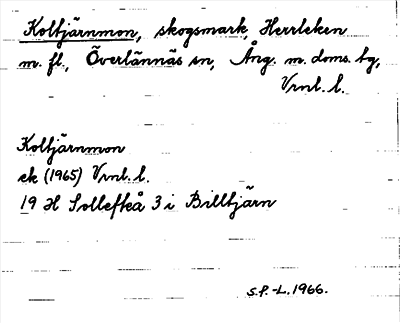 Koltjärnmon, skogsmark, Herrleken
m. fl., Överlännäs sn, Ång. m. doms. bg,
Vrnl. l.
Koltjärnmon
ek (1965) Vrnl. l.
19 H Sollefteå 3 i Billtjärn
S.P.-L. 1966.